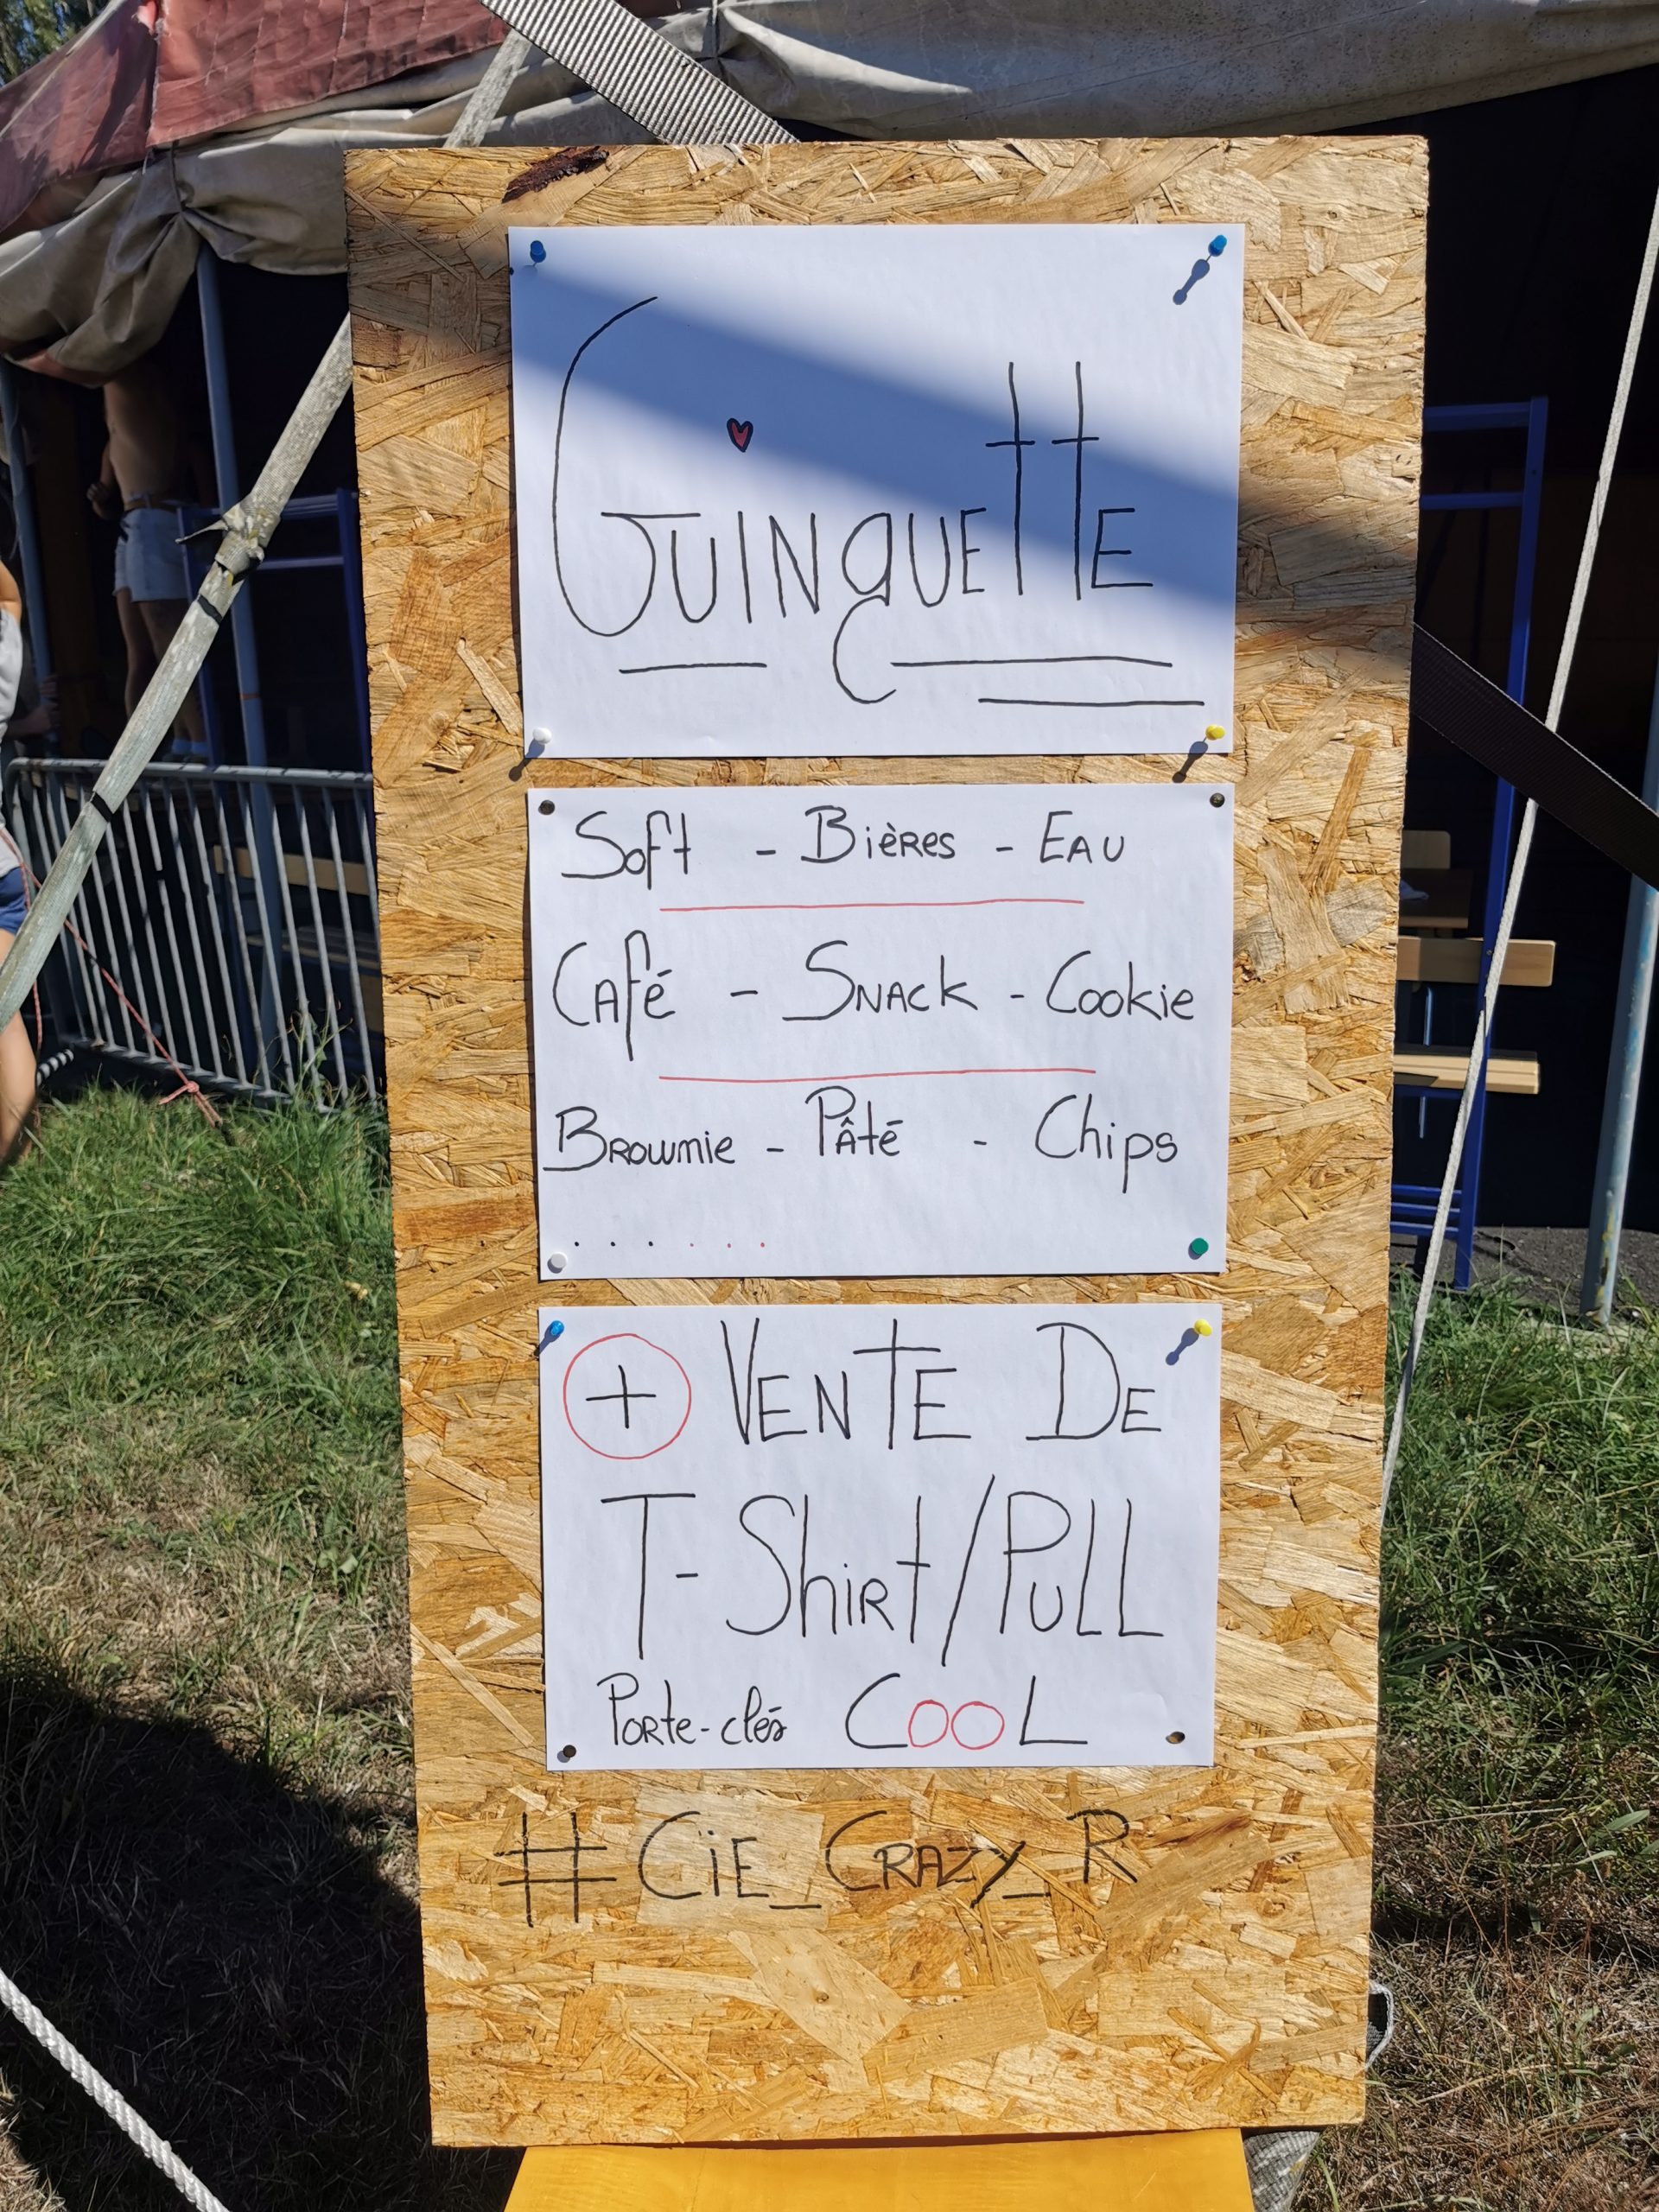 GUINQUETTE
Soft - Bières - EAU
CAfé - SNACK - Cookie
BROWNIE - Pâté - Chips
. . . . . .
+ VENTE DE
T-ShiRt/PULL
PORte-clés COOL
#CiE_CRAZY_R